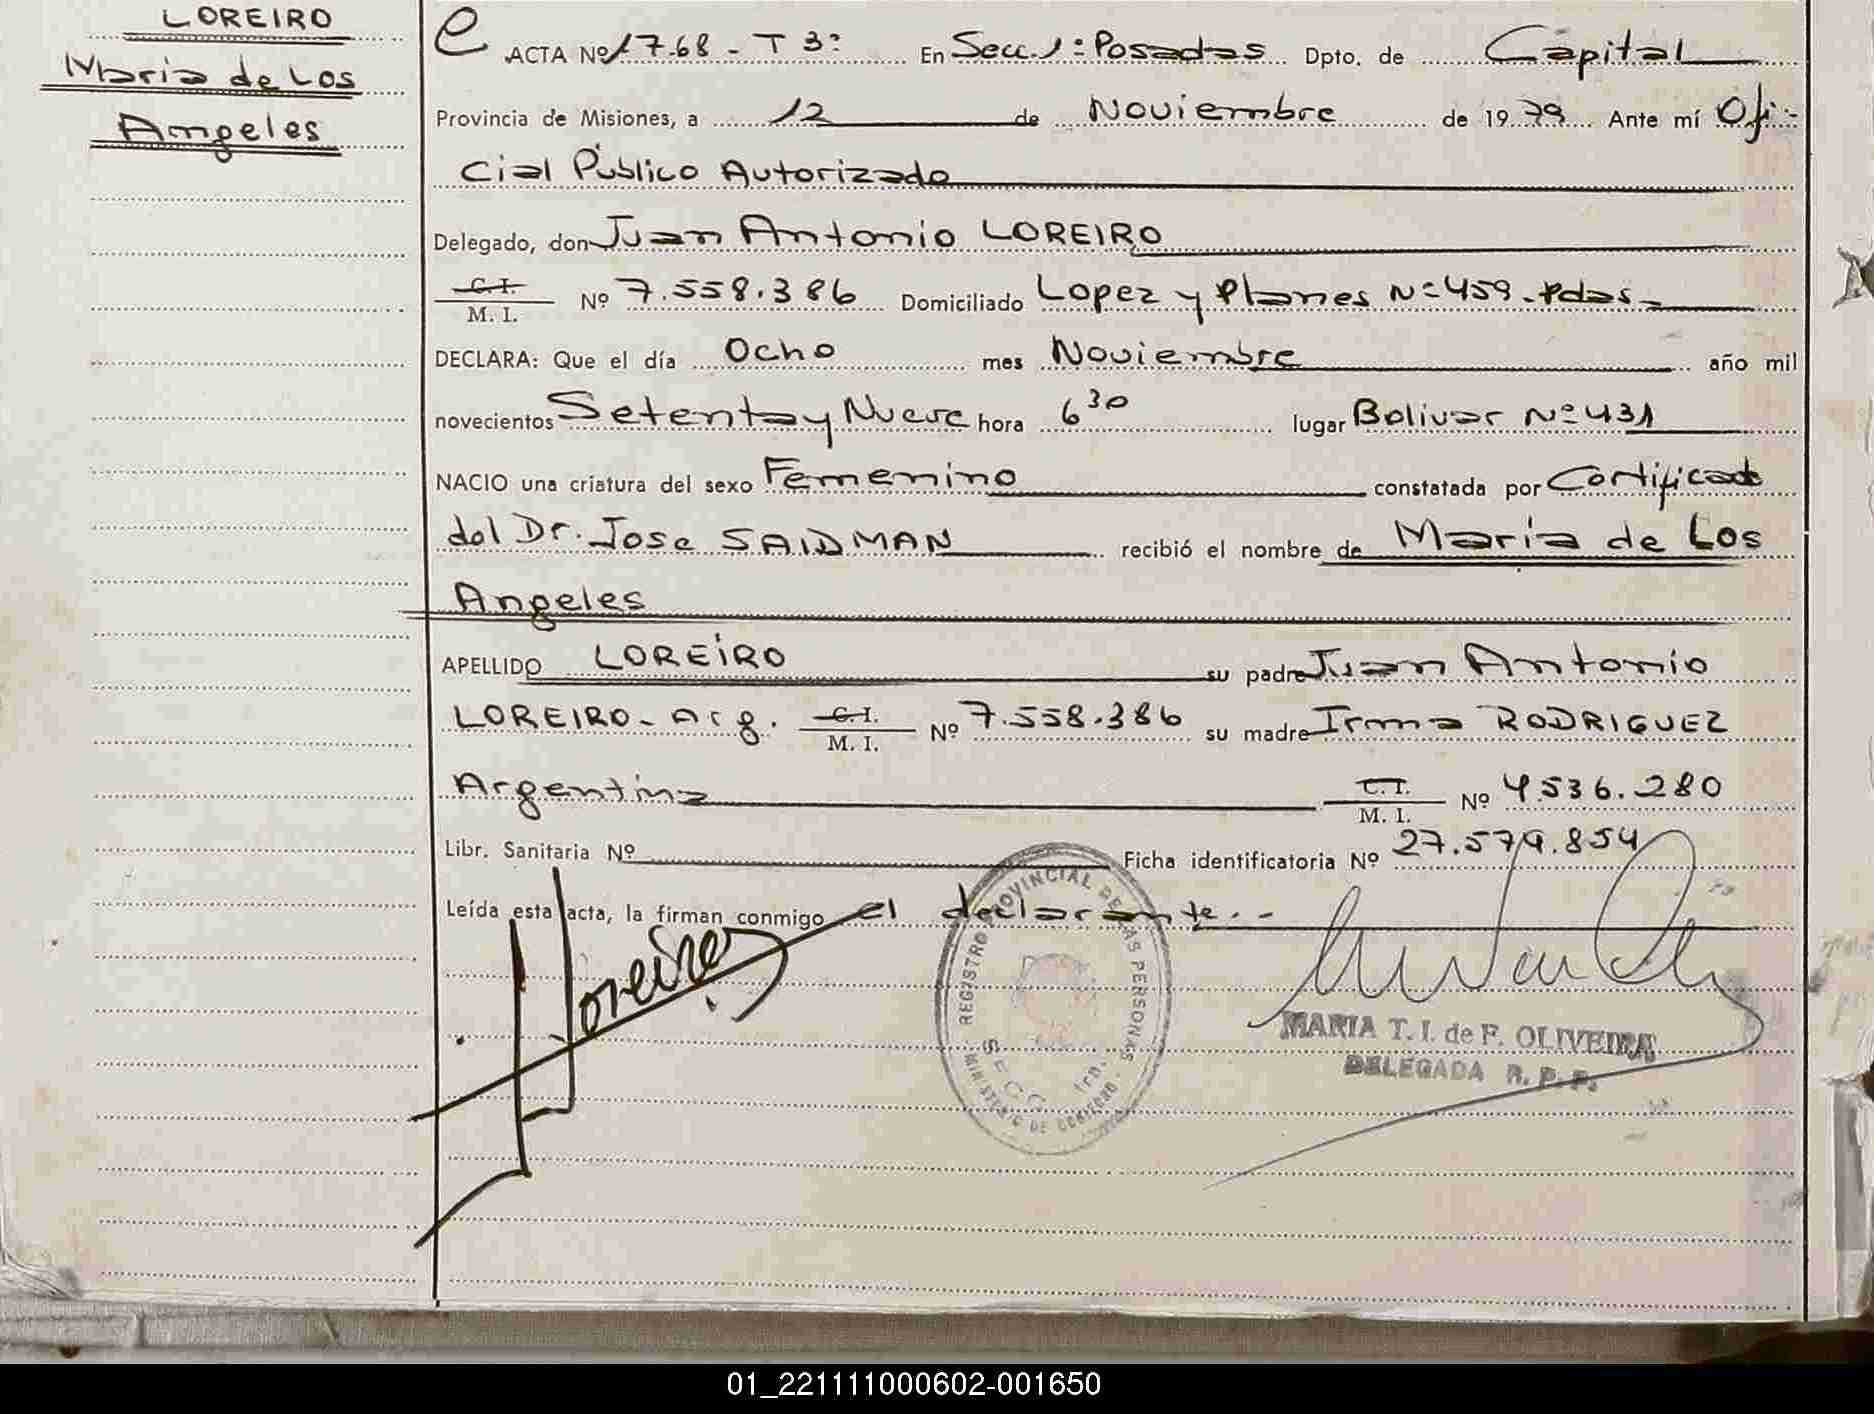 LOREIRO
Maria de Los
Angeles
e ACTA Nº 1768 - T 3º En Secc. 1º Posadas Dpto. de Capital
Provincia de Misiones, a 12 de Noviembre de 1979 Ante mí Ofi-
cial Público Autorizado
Delegado, don Juan Antonio LOREIRO
C. I.
M. I. Nº 7.558.386 Domiciliado Lopez y Planes Nº 459 - Pdas -
DECLARA: Que el día Ocho mes Noviembre año mil
novecientos Setenta y Nueve hora 6 30 lugar Bolivar Nº 431
NACIO una criatura del sexo Femenino constatada por Certificado
del Dr. Jose SAIDMAN recibió el nombre de María de Los
Angeles
APELLIDO LOREIRO su padre Juan Antonio
LOREIRO - Arg. C. I.
M. I. Nº 7.558.386 su madre Irma RODRIGUEZ
Argentina C. I.
M. I. Nº 4.536.280
Libr. Sanitaria Nº Ficha identificatoria Nº 27.579.854
Leída esta acta, la firman conmigo el declarante. -
Loreiro
REGISTRO PROVINCIAL DE LAS PERSONAS
SECC. 1ra.
MINISTERIO DE GOBIERNO
MARIA T. I. de F. OLIVEIRA
DELEGADA R. P. P.
01_221111000602-001650